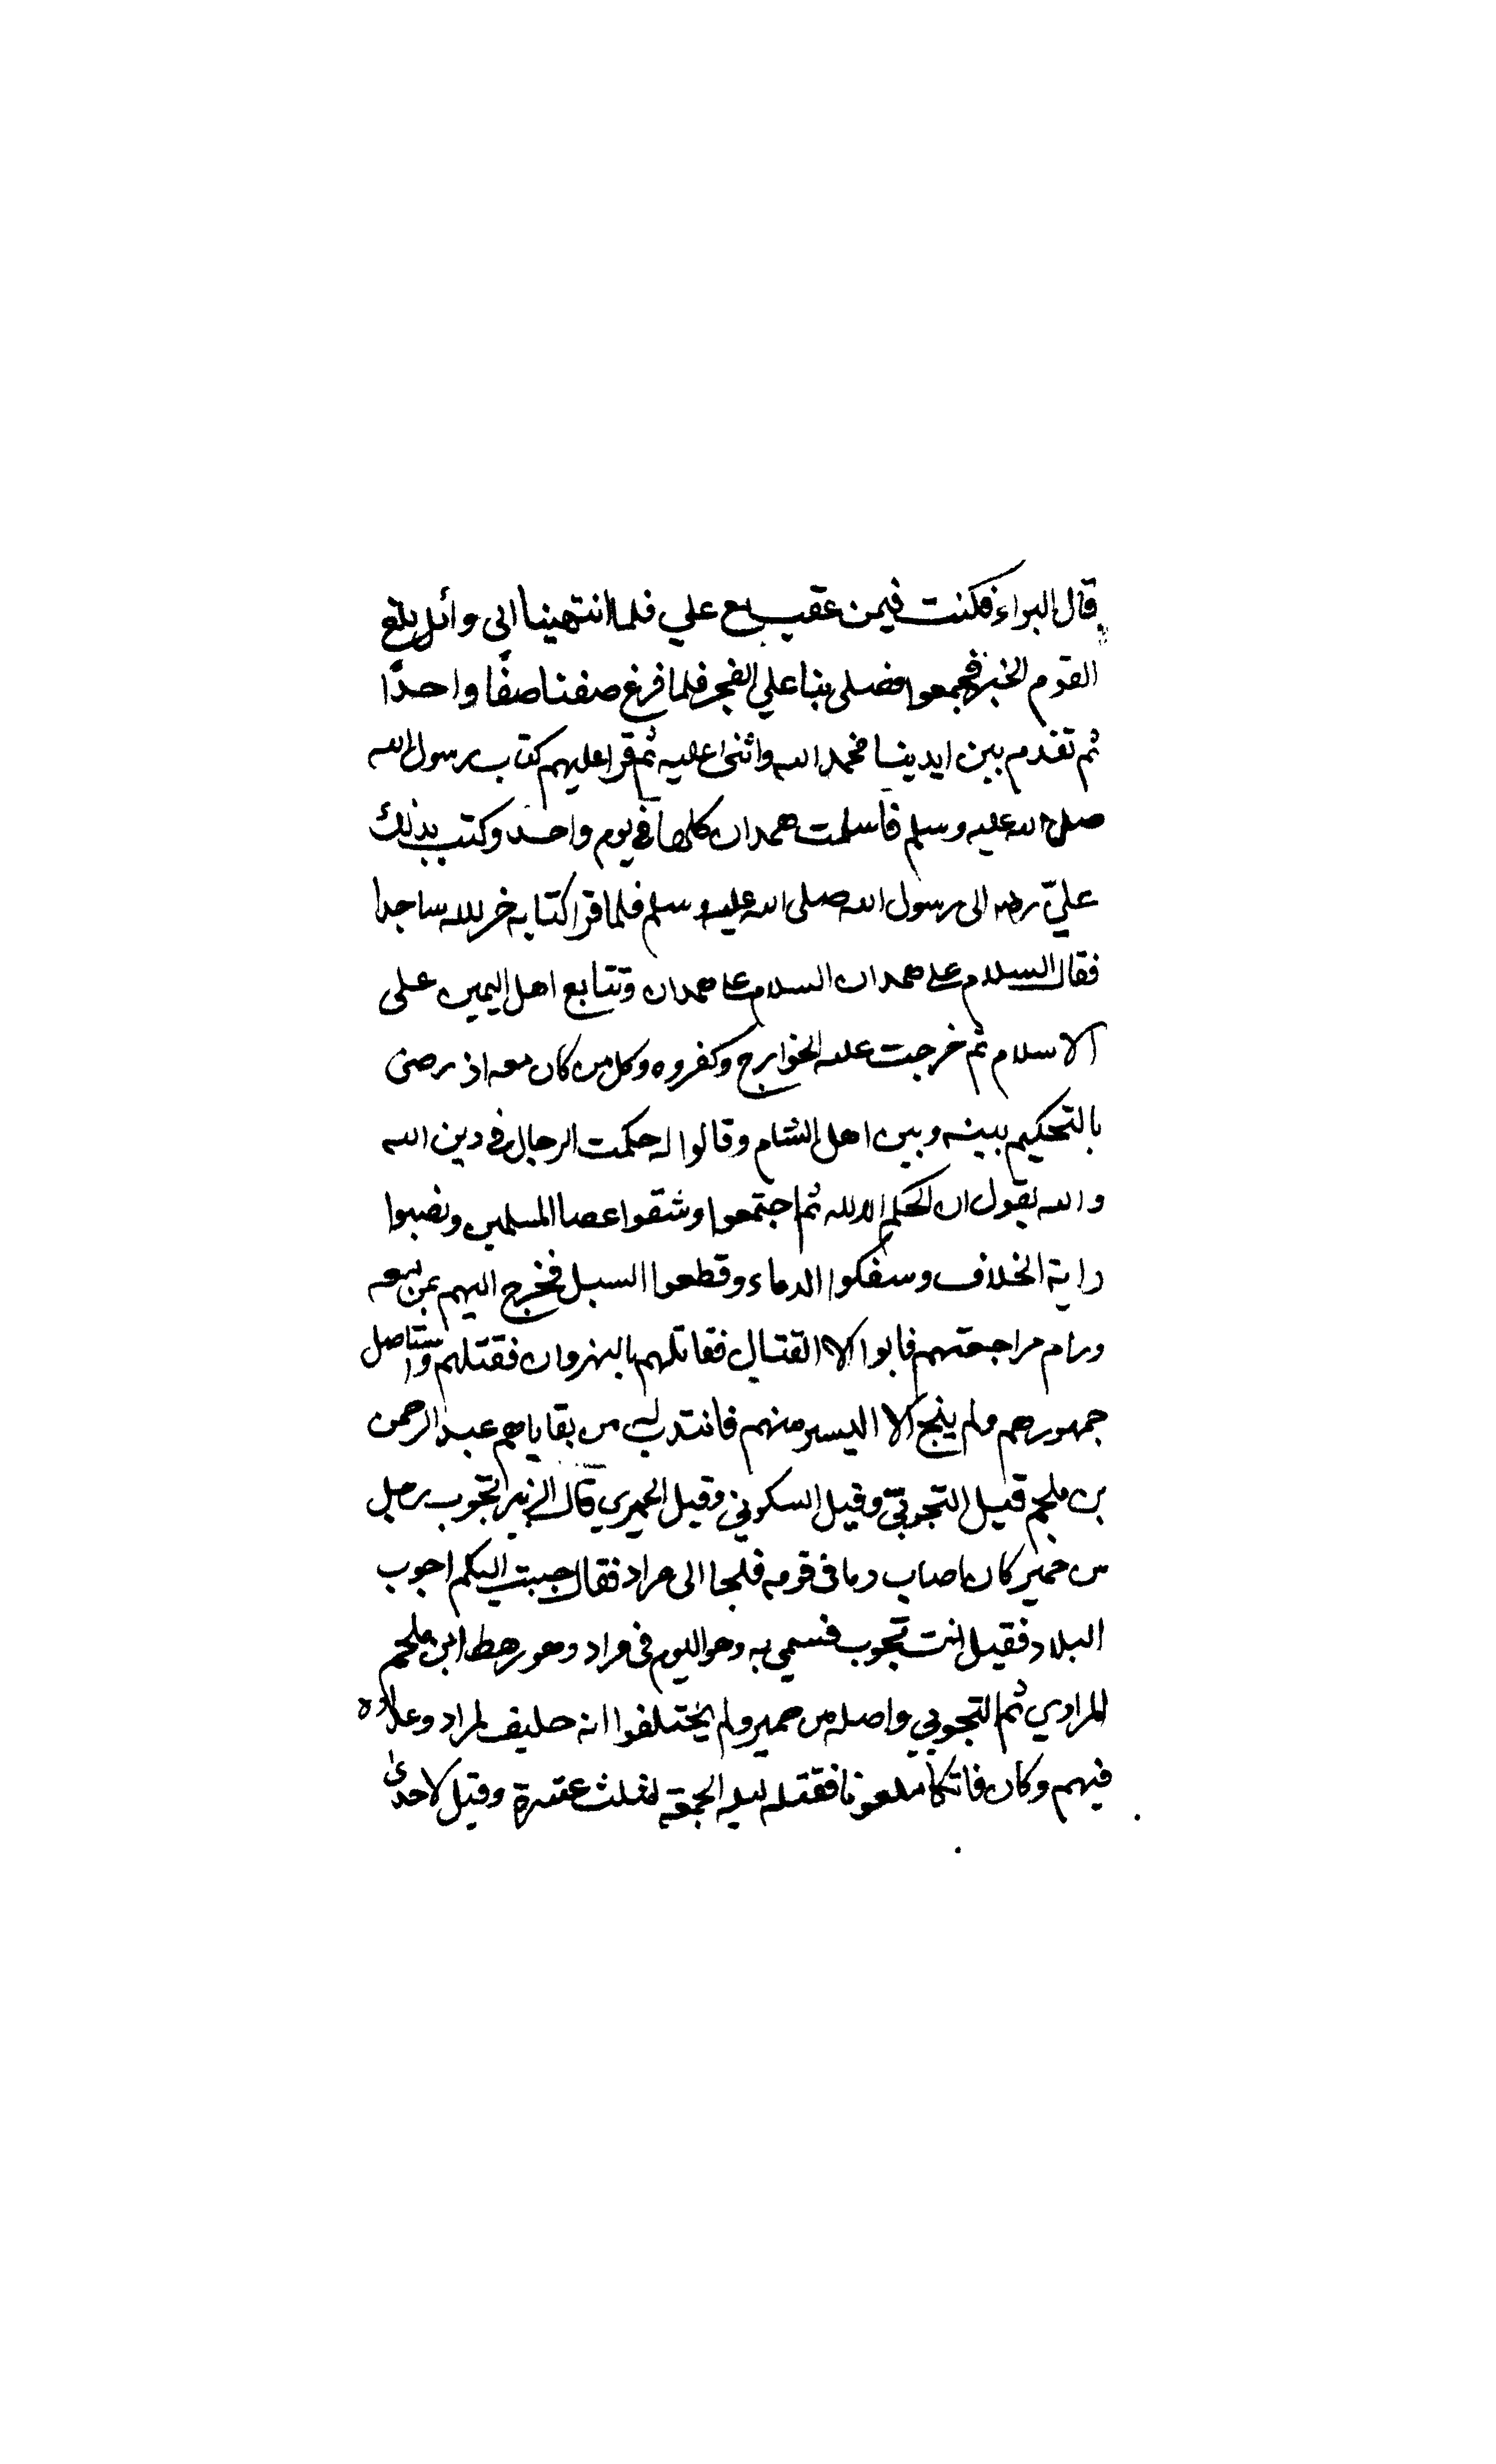 قال البراء فكنت فيمن عقب مع علي فلما انتهينا الى وائل بلغ
القوم الخبر فجمعوا فصلى بنا علي الفجر فلما فرغ صفنا صفًا واحدًا
ثم تقدم بين ايدينا فحمد الله واثنى عليه ثم قرا عليهم كتاب رسول الله
صلى الله عليه وسلم فاسلمت همدان كلها في يوم واحد وكتب بذلك
عليّ رضه الى رسول الله صلى الله عليه وسلم فلما قرا كتابه خر لله ساجدا
فقال السلام على همدان السلام على همدان وتتابع اهل اليمن على
الاسلام ثم خرجت عليه الخوارج وكفروه وكل من كان معه اذ رضى
بالتحكيم بينه وبين اهل الشام وقالوا له حكمت الرجال في دين الله
والله يقول ان الحكم الا لله ثم اجتمعوا وشقوا عصا المسلمين ونصبوا
راية الخلاف وسفكوا الدماء وقطعوا السبل فخرج اليهم بمن معه
ورام مراجعتهم فابوا الا القتال فقاتلهم بالنهروان فقتلهم واستاصل
جمهورهم ولم ينج الا اليسير منهم فانتدب له من بقاياهم عبد الرحمن
بن ملجم قيل التجوبيّ وقيل السكوني وقيل الحميري قال الزبير تجوب رجل
من حمير كان اصاب دما في قومه فلجا الى مراد فقال جيت اليكم اجوب
البلاد فقيل انت تجوب فسمي به وهو اليوم في مراد وهو رهط ابن ملجم
المرادي ثم التجوبي واصله من حمير ولم يختلفوا انه حليف لمراد وعداده
فيهم وكان فاتكا ملعونا فقتله ليله الجمعة لثلث عشرة وقيل لاحدى